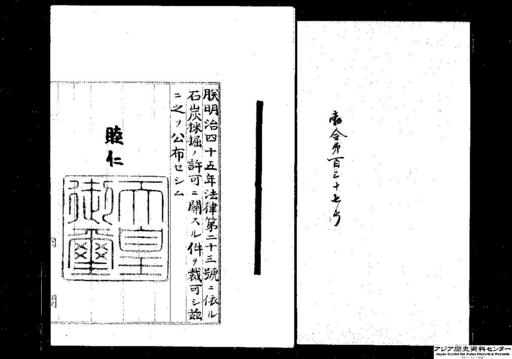 勅令第百三十七号
朕明治四十五年法律第二十三號ニ依ル
石炭採掘ノ許可ニ關スル件ヲ裁可シ玆
ニ之ヲ公布セシム
睦仁
天皇
御璽
アジア歴史資料センター
Japan Center for Asian Historical Records